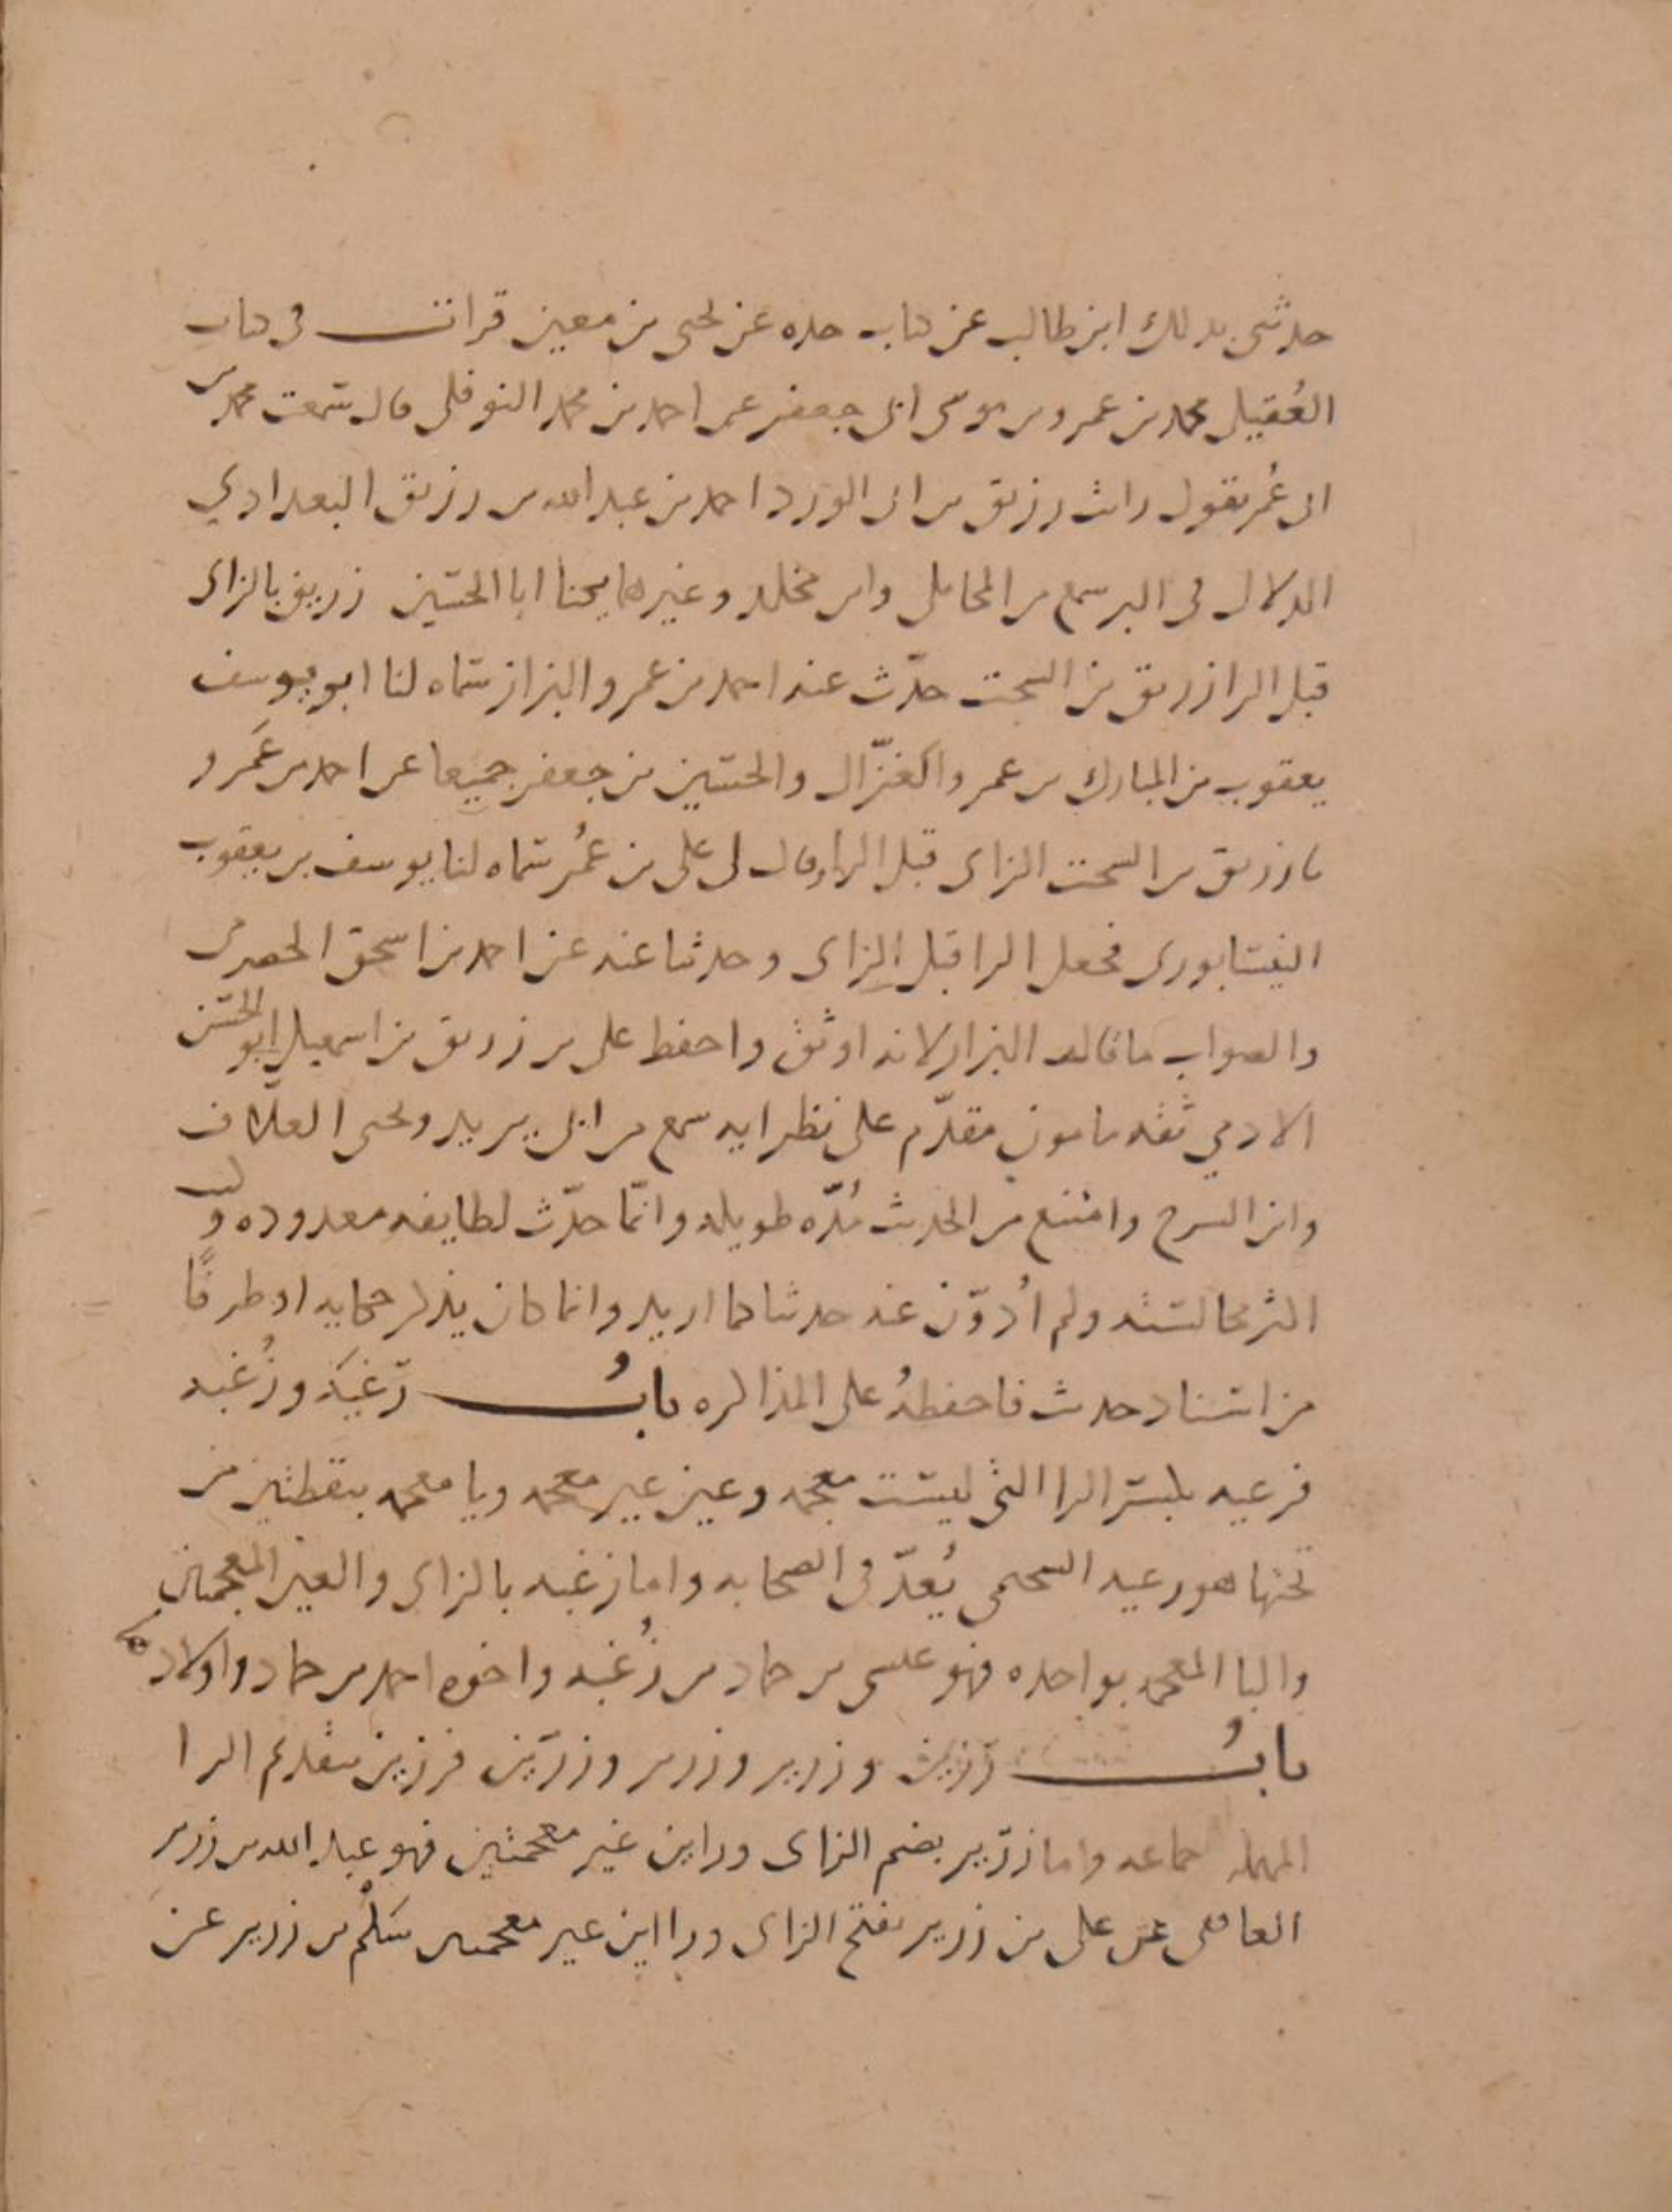 حدثنى بذلك ابن طالب عن كتاب جده عن يحيى بن معين قرأت فى كتاب
العُقيلى محمد بن عمرو بن موسى ابى جعفر عن احمد بن محمد النوفلى قال سمعت محمد بن
ابى عُمر يقول رايت رزيق بن ابى الورد احمد بن عبد الله بن رزيق البغدادي
الدلال فى البر سمع من المحاملى وابن مخلد وغيرهما يكنا ابا الحسين زريق بالزاى
قبل الرا زريق بن السخت حدّث عنه احمد بن عمرو البزاز سماه لنا ابو يوسف
يعقوب بن المبارك بن عمرو الغزّال والحسين بن جعفر جميعا عن احمد بن عَمرو
نا زريق بن السخت الزاى قبل الراء وقال لى على بن عُمر سماه لنا يوسف بن يعقوب
النيسابورى فجعل الرا قبل الزاى وحدثنا عنه عن احمد بن اسحق الحضرمى
والصواب ما قاله البزاز لانه اوثق واحفظ على بن زريق بن اسمعيل ابو الحسن
الادمي ثقه مامون مقدّم على نظرايه سمع من ابى يزيد ويحيى العلاف
وابن السرح وامتنع من الحديث مُدّه طويله وانّما حدّث لطايفه معدوده وكنت
اكثر مجالسته ولم اُدوّن عنه حديثا كما اريد وانما كان يذكر حكايه او طرفًا
من اسناد حديث فاحفظهُ على المذاكره بابُ رَعْيَه وزُغبه
فرعيه بكسر الرا التى ليست معجمه وعين غير معجمه ويا معجمه بنقطتين من
تحتها هو رعيه السحيمى يُعدّ فى الصحابه واما زغبه بالزاى والغين المعجمتين
والبا المعجمه بواحده فهو عيسى بن حماد بن زُغبه واخوه احمد بن حماد واولاده
بابُ رَزين وزرير وزرير وزرّين فرزين بتقديم الرا
المهمله جماعه واما زرير بضم الزاى وراين غير معجمتين فهو عبد الله بن زرير
الغافقى عن على بن زرير بفتح الزاى وراين غير معجمتين سَلْم بن زرير عن